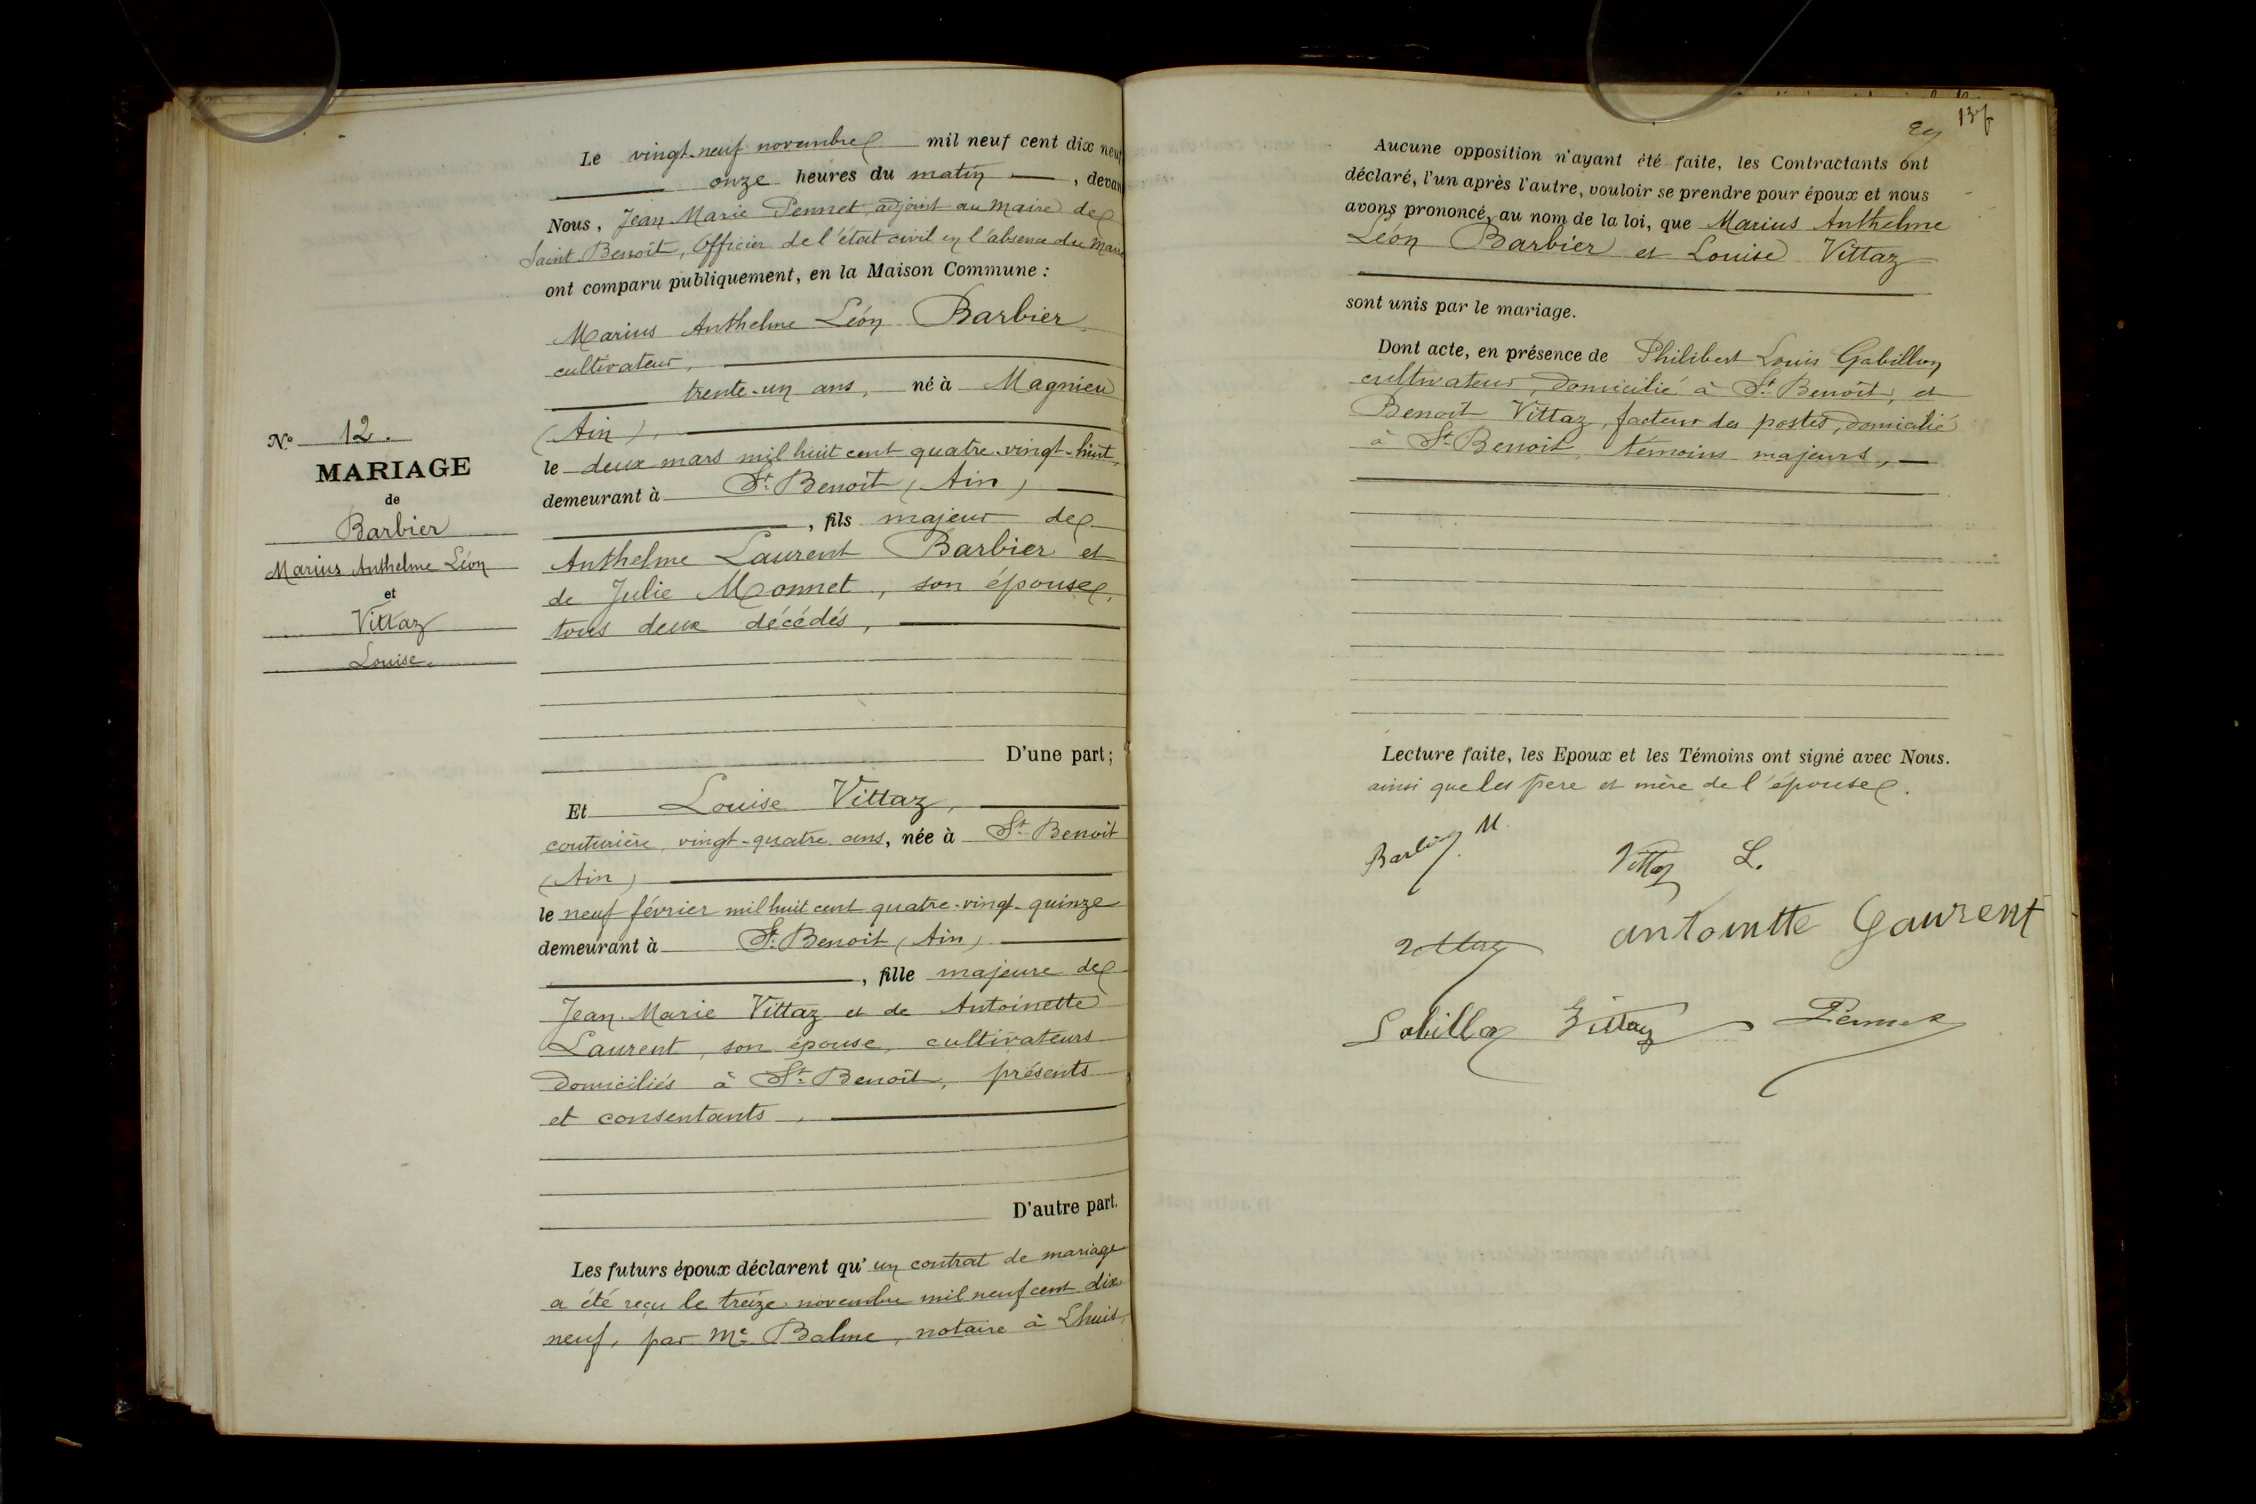 Le vingt-neuf novembre mil neuf cent dix neuf
onze heures du matin, devan
Nous, Jean Marie Pennet, adjoint au maire de
Saint Benoît, Officier de l'état civil en l'absence du maire
ont comparu publiquement, en la Maison Commune :
Marius Anthelme Léon Barbier
cultivateur,
trente-un ans, né à Magnieu
(Ain),
le deux mars mil huit cent quatre-vingt-huit,
demeurant à St Benoît (Ain)
, fils majeur de
Anthelme Laurent Barbier et
de Julie Monnet, son épouse,
tous deux décédés,
D'une part;
No 12.
MARIAGE
de
Barbier
Marius Anthelme Léon
et
Vittaz
Louise.
Et Louise Vittaz,
couturière, vingt-quatre ans, née à St Benoît
(Ain)
le neuf février mil huit cent quatre-vingt-quinze
demeurant à St Benoit (Ain)
, fille majeure de
Jean-Marie Vittaz et de Antoinette
Laurent, son épouse, cultivateurs
domiciliés à St Benoît, présents
et consentants,
D'autre part.
Les futurs époux déclarent qu'un contrat de mariage
a été reçu le treize novembre mil neuf cent dix
neuf, par Me Balme, notaire à Lhuis,
Aucune opposition n'ayant été faite, les Contractants ont
déclaré, l'un après l'autre, vouloir se prendre pour époux et nous
avons prononcé, au nom de la loi, que Marius Anthelme
Léon Barbier et Louise Vittaz
sont unis par le mariage.
Dont acte, en présence de Philibert Louis Gabillon
cultivateur, domicilié à St Benoît, et
Benoît Vittaz, facteur des postes, domicilié
à St Benoît, témoins majeurs,
Lecture faite, les Epoux et les Témoins ont signé avec Nous.
ainsi que les père et mère de l'épouse.
Barbier M.
Vittaz L.
Vittaz
antoinette Gaurent
Vittaz
Pennet